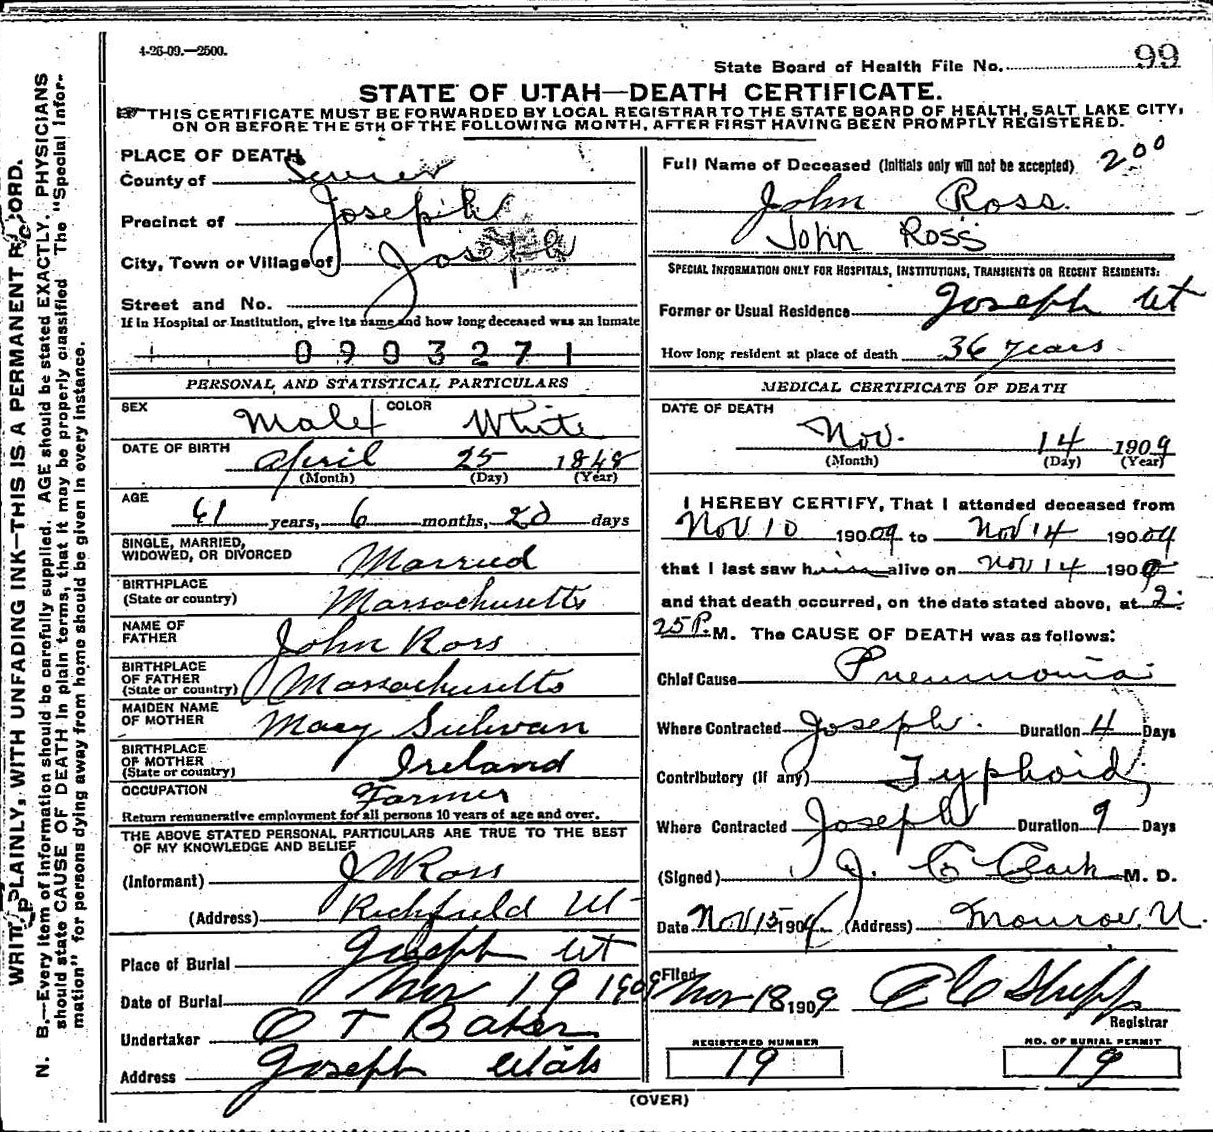 4-26-09.—2500.
State Board of Health File No. 99
STATE OF UTAH—DEATH CERTIFICATE.
THIS CERTIFICATE MUST BE FORWARDED BY LOCAL REGISTRAR TO THE STATE BOARD OF HEALTH, SALT LAKE CITY,
ON OR BEFORE THE 5TH OF THE FOLLOWING MONTH, AFTER FIRST HAVING BEEN PROMPTLY REGISTERED.
PLACE OF DEATH
County of Sevier
Precinct of Joseph
City, Town or Village of Joseph
Street and No.
If in Hospital or Institution, give its name and how long deceased was an inmate
0903271
PERSONAL AND STATISTICAL PARTICULARS
SEX Male COLOR White
DATE OF BIRTH April 25 1848
(Month) (Day) (Year)
AGE 61 years, 6 months, 20 days
SINGLE, MARRIED,
WIDOWED, OR DIVORCED Married
BIRTHPLACE
(State or country) Massachusetts
NAME OF
FATHER John Ross
BIRTHPLACE
OF FATHER
(State or country) Massachusetts
MAIDEN NAME
OF MOTHER Mary Sulivan
BIRTHPLACE
OF MOTHER
(State or country) Ireland
OCCUPATION Farmer
Return remunerative employment for all persons 10 years of age and over.
THE ABOVE STATED PERSONAL PARTICULARS ARE TRUE TO THE BEST
OF MY KNOWLEDGE AND BELIEF
(Informant) J W Ross
(Address) Richfield Ut
Place of Burial Joseph Ut
Date of Burial Nov 19 1909
Undertaker O T Baker
Address Joseph Utah
Full Name of Deceased (Initials only will not be accepted) 200
John Ross.
John Ross
SPECIAL INFORMATION ONLY FOR HOSPITALS, INSTITUTIONS, TRANSIENTS OR RECENT RESIDENTS:
Former or Usual Residence Joseph Ut
How long resident at place of death 36 years
MEDICAL CERTIFICATE OF DEATH
DATE OF DEATH
Nov. 14 1909
(Month) (Day) (Year)
I HEREBY CERTIFY, That I attended deceased from
Nov 10 190 09 to Nov 14 190 09
that I last saw him alive on Nov 14 190 9
and that death occurred, on the date stated above, at 2:
25 P. M. The CAUSE OF DEATH was as follows:
Chief Cause Pneumonia
Where Contracted Joseph. Duration 4 Days
Contributory (if any) Typhoid
Where Contracted Joseph Duration 9 Days
(Signed) J. C Clark M. D.
Date Nov 15 190 (Address) Monroe, U.
Filed Nov 18 1909
Registrar
REGISTERED NUMBER
19
NO. OF BURIAL PERMIT
19
(OVER)
WRITE PLAINLY, WITH UNFADING INK—THIS IS A PERMANENT RECORD.
N. B.—Every item of information should be carefully supplied. AGE should be stated EXACTLY. PHYSICIANS
should state CAUSE OF DEATH in plain terms, that it may be properly classified. The "Special Infor-
mation" for persons dying away from home should be given in every instance.